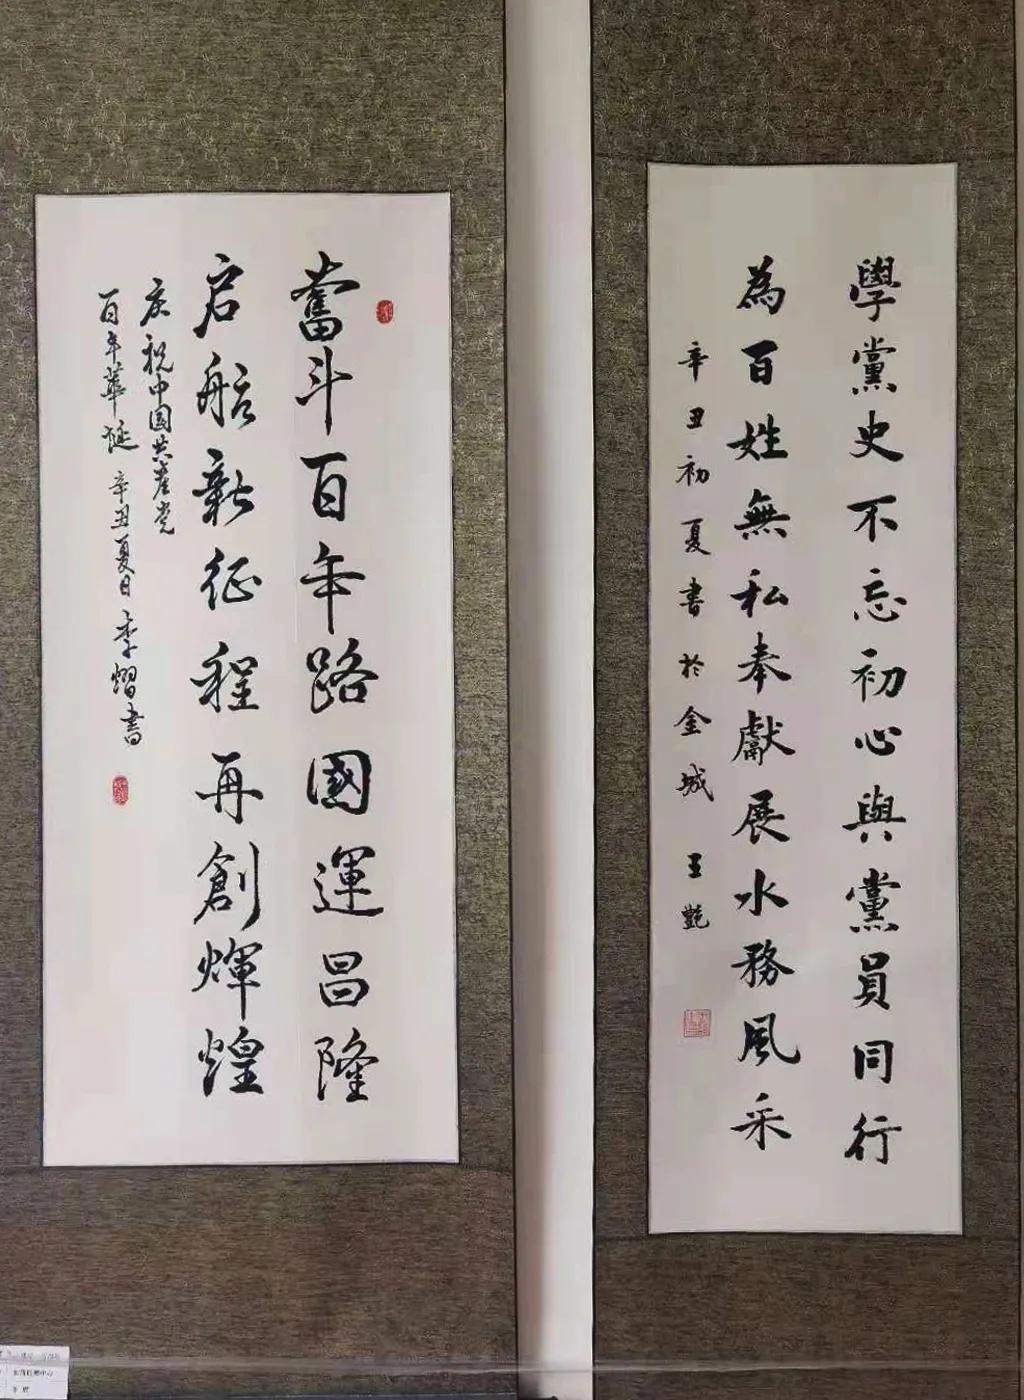 學黨史不忘初心與黨員同行
為百姓無私奉獻展水務風采
辛丑初夏書於金城 王艷
奮斗百年路國運昌隆
启航新征程再創輝煌
庆祝中国共产党
百年華诞 辛丑夏日 李熠書